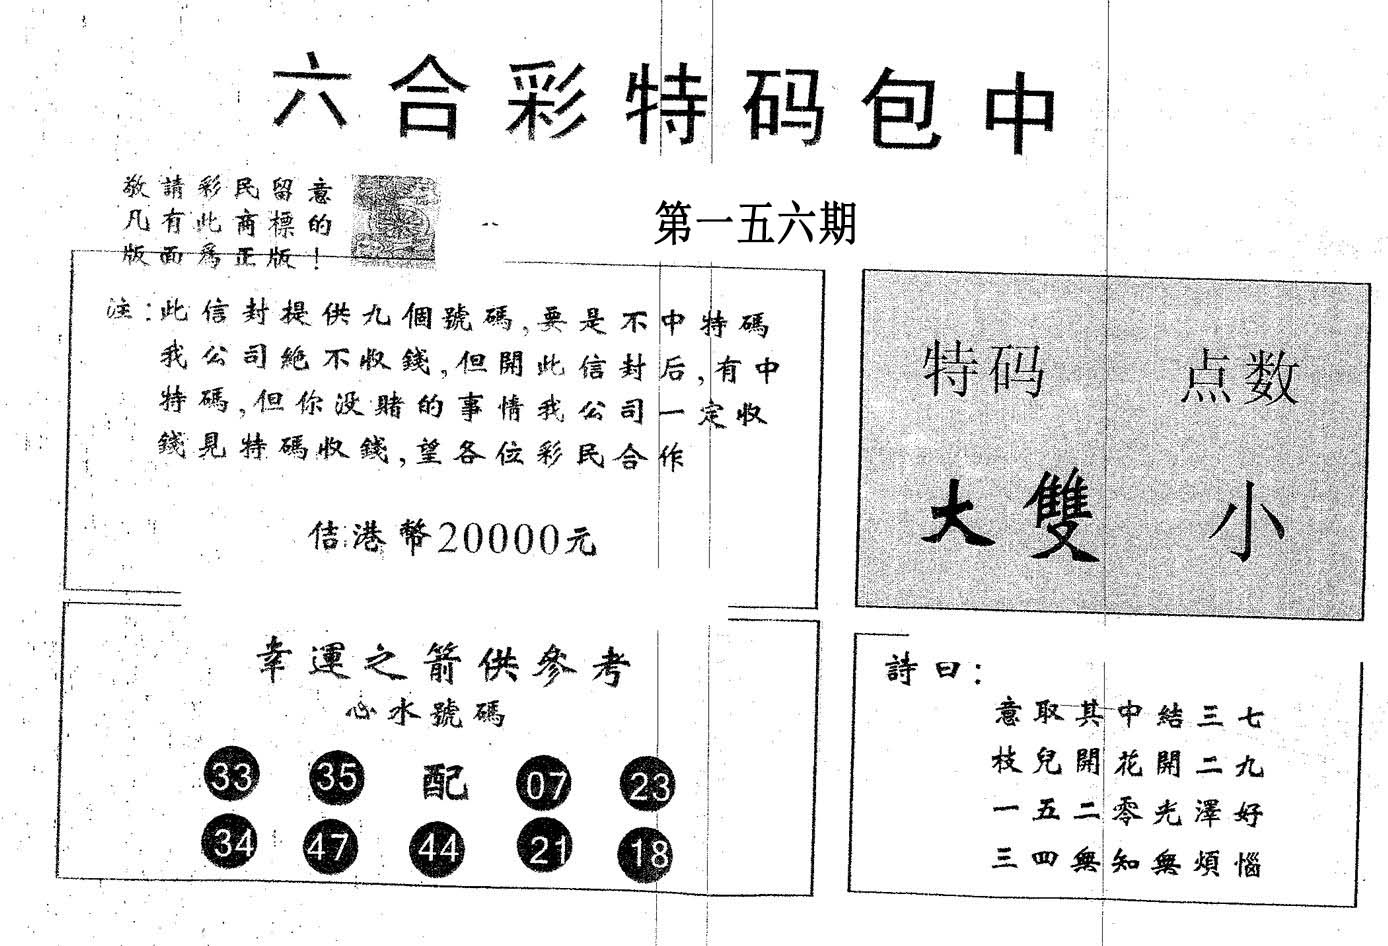 六合彩特码包中
敬請彩民留意
凡有此商標的
版面爲正版！
第一五六期
注：此信封提供九個號碼，要是不中特碼
我公司絶不收錢，但開此信封后，有中
特碼，但你没賭的事情我公司一定收
錢見特碼收錢，望各位彩民合作
佶港幣20000元
特码 点数
大雙 小
幸運之箭供參考
心水號碼
33 35 配 07 23
34 47 44 21 18
詩曰：
意取其中結三七
枝兒開花開二九
一五二零光澤好
三四無知無煩惱